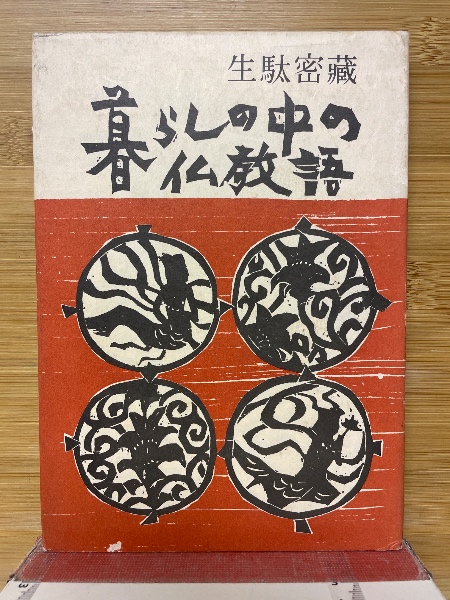 生駄密藏
暮らしの中の
仏教語